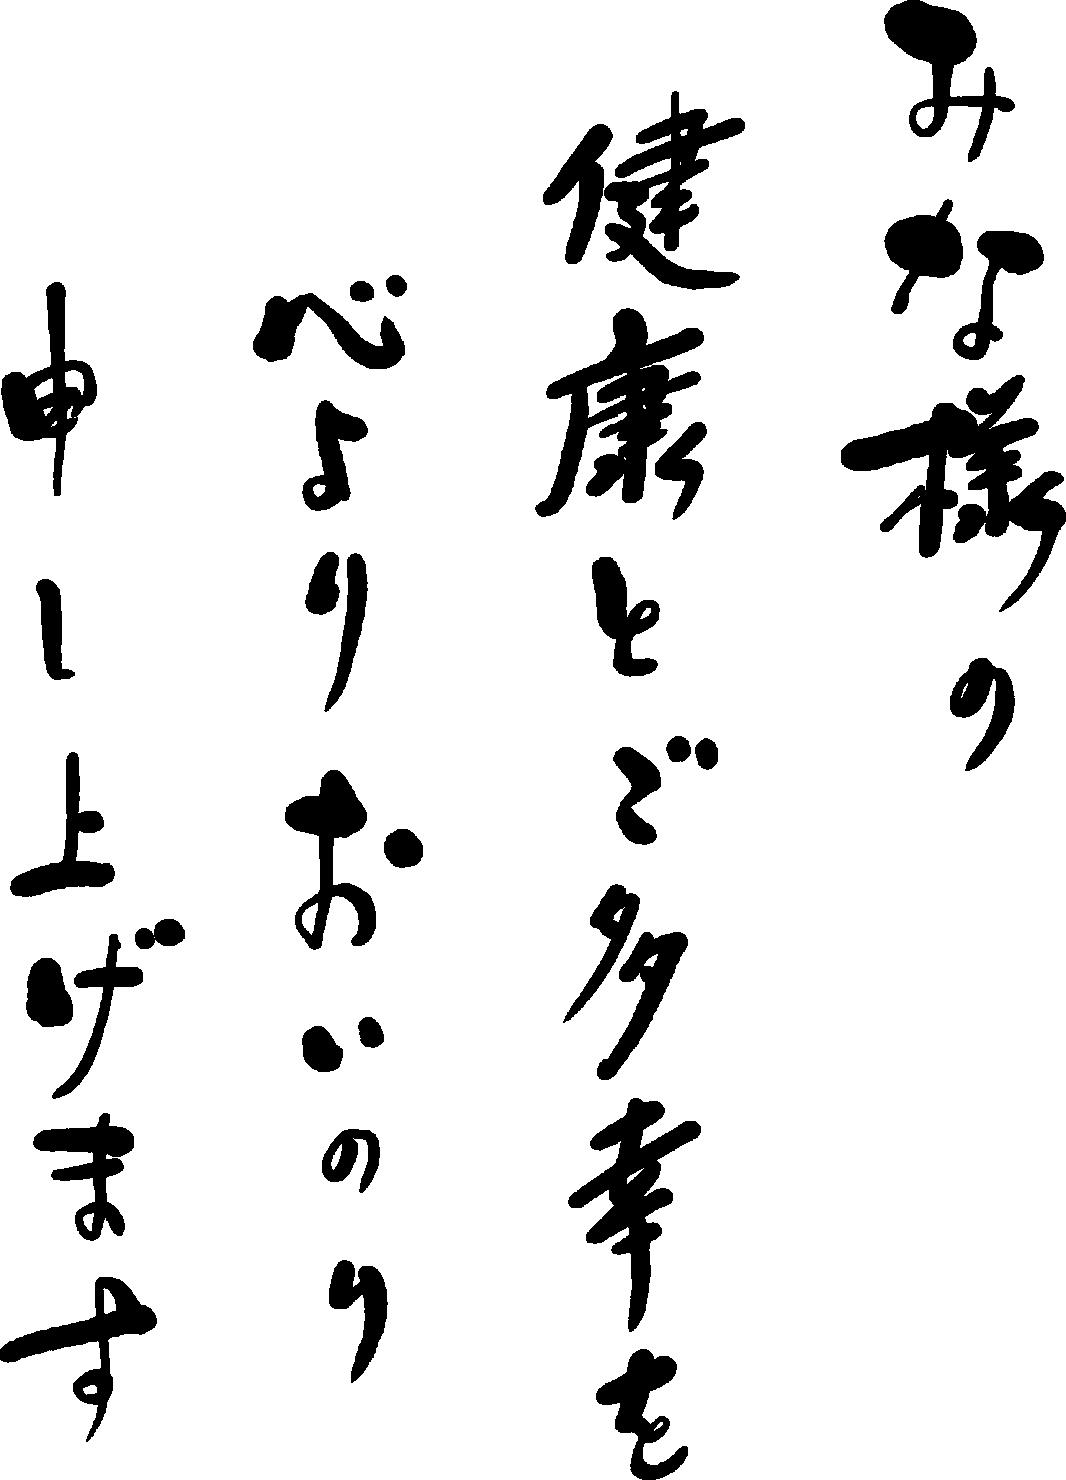 みな様の
健康とご多幸を
心よりおいのり
申し上げます